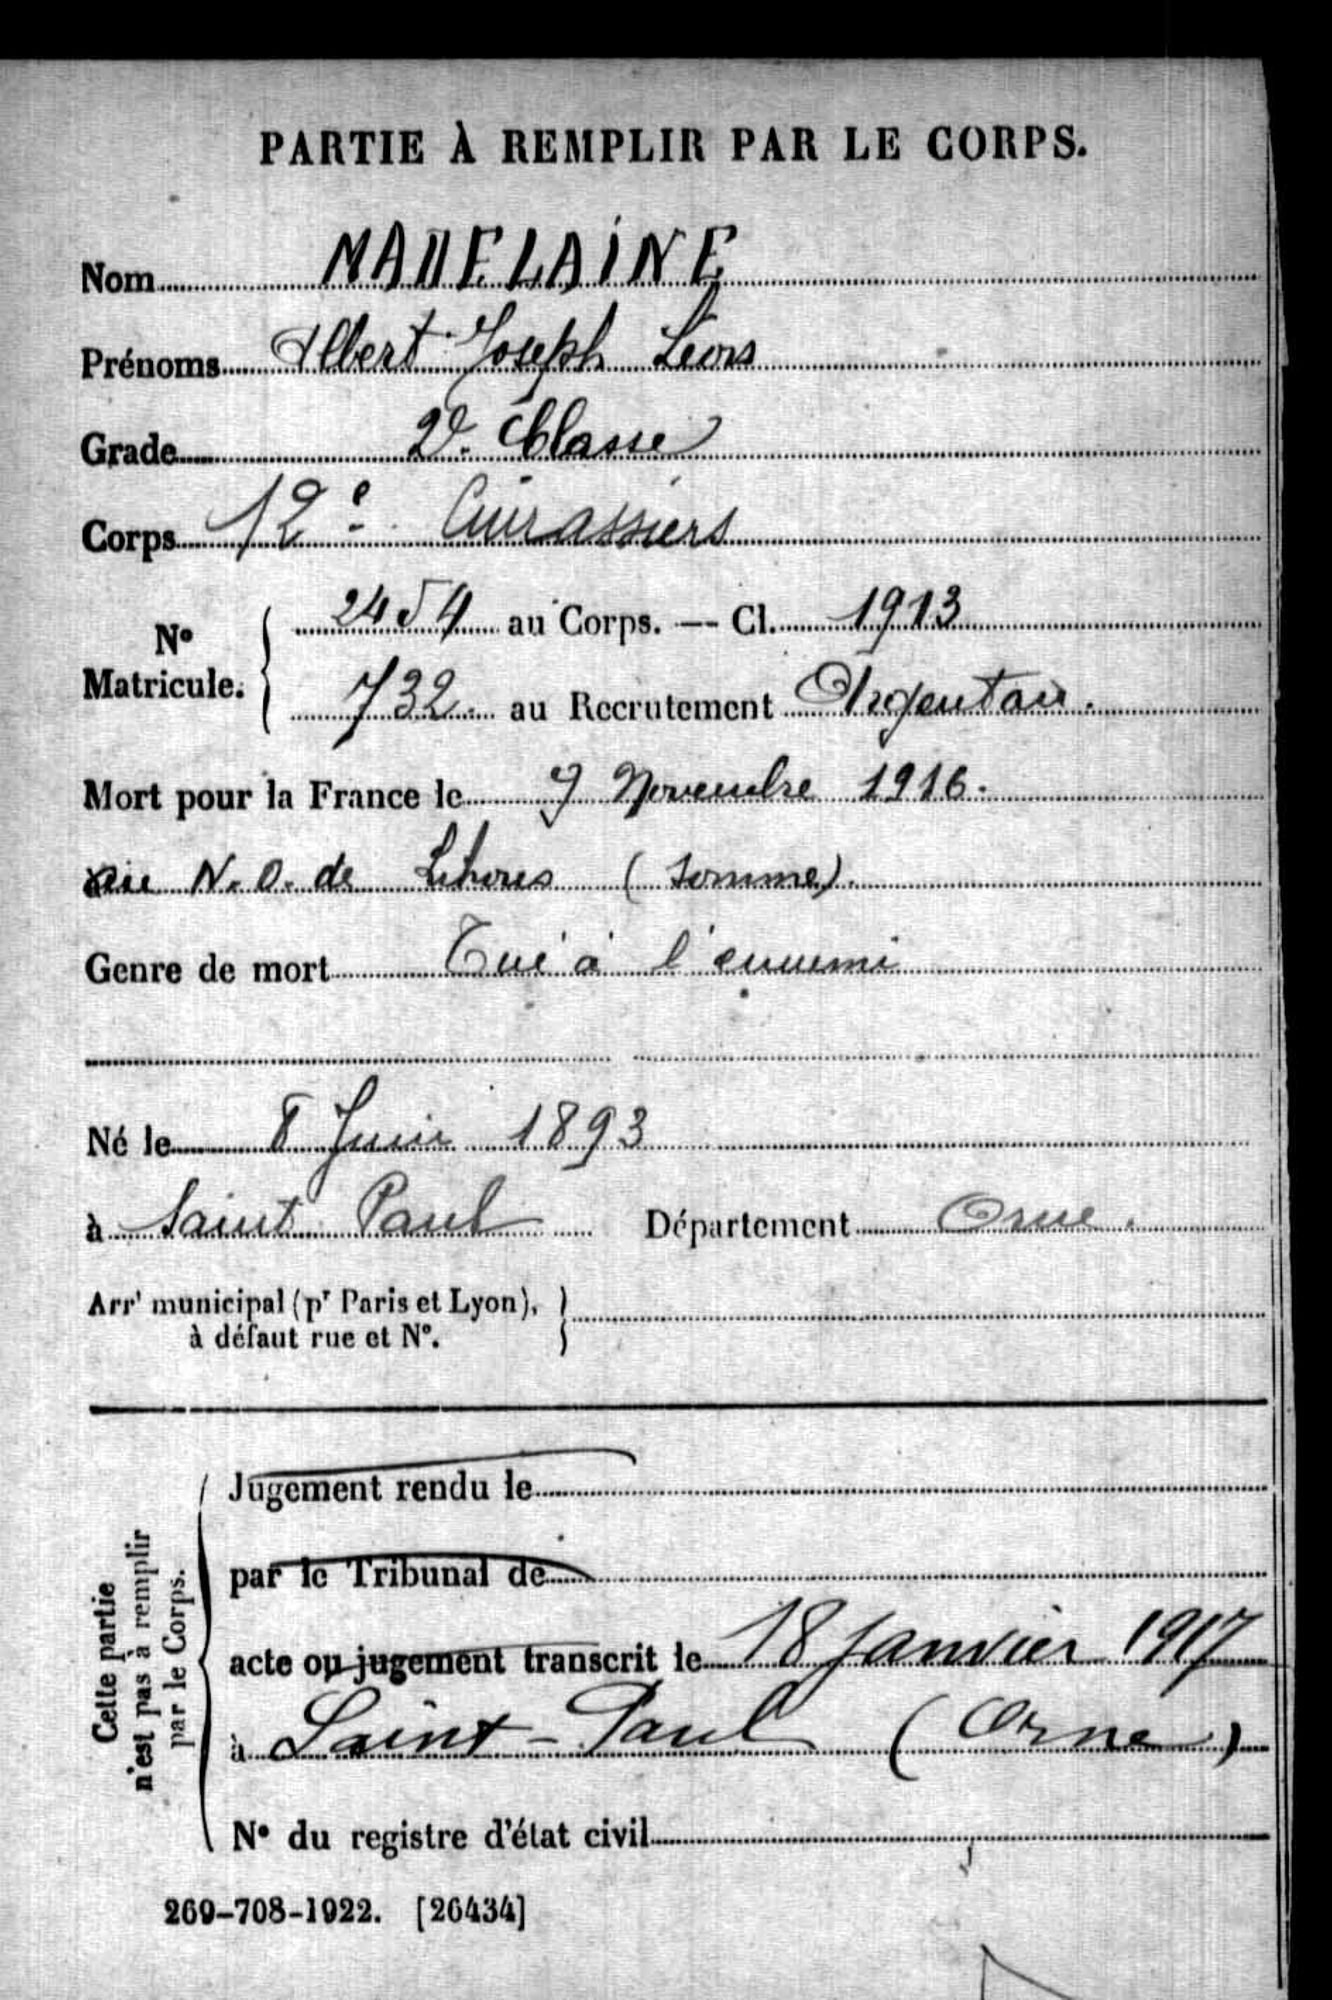 PARTIE À REMPLIR PAR LE CORPS.
Nom MADELAINE
Prénoms Albert Joseph Léon
Grade 2e. Classe
Corps 12e Cuirassiers
N° Matricule. { 2454 au Corps. — Cl. 1913
732. au Recrutement Argentan.
Mort pour la France le 9 Novembre 1916.
au N.O. de Lihons (Somme).
Genre de mort Tué à l'ennemi
Né le 8 Juin 1893
à Saint Paul Département Orne.
Arrt municipal (pr Paris et Lyon), }
à défaut rue et N°.
Cette partie
n'est pas à remplir
par le Corps.
Jugement rendu le
par le Tribunal de
acte ou jugement transcrit le 18 Janvier 1917
à Saint-Paul (Orne)
N° du registre d'état civil
269-708-1922. [26434]